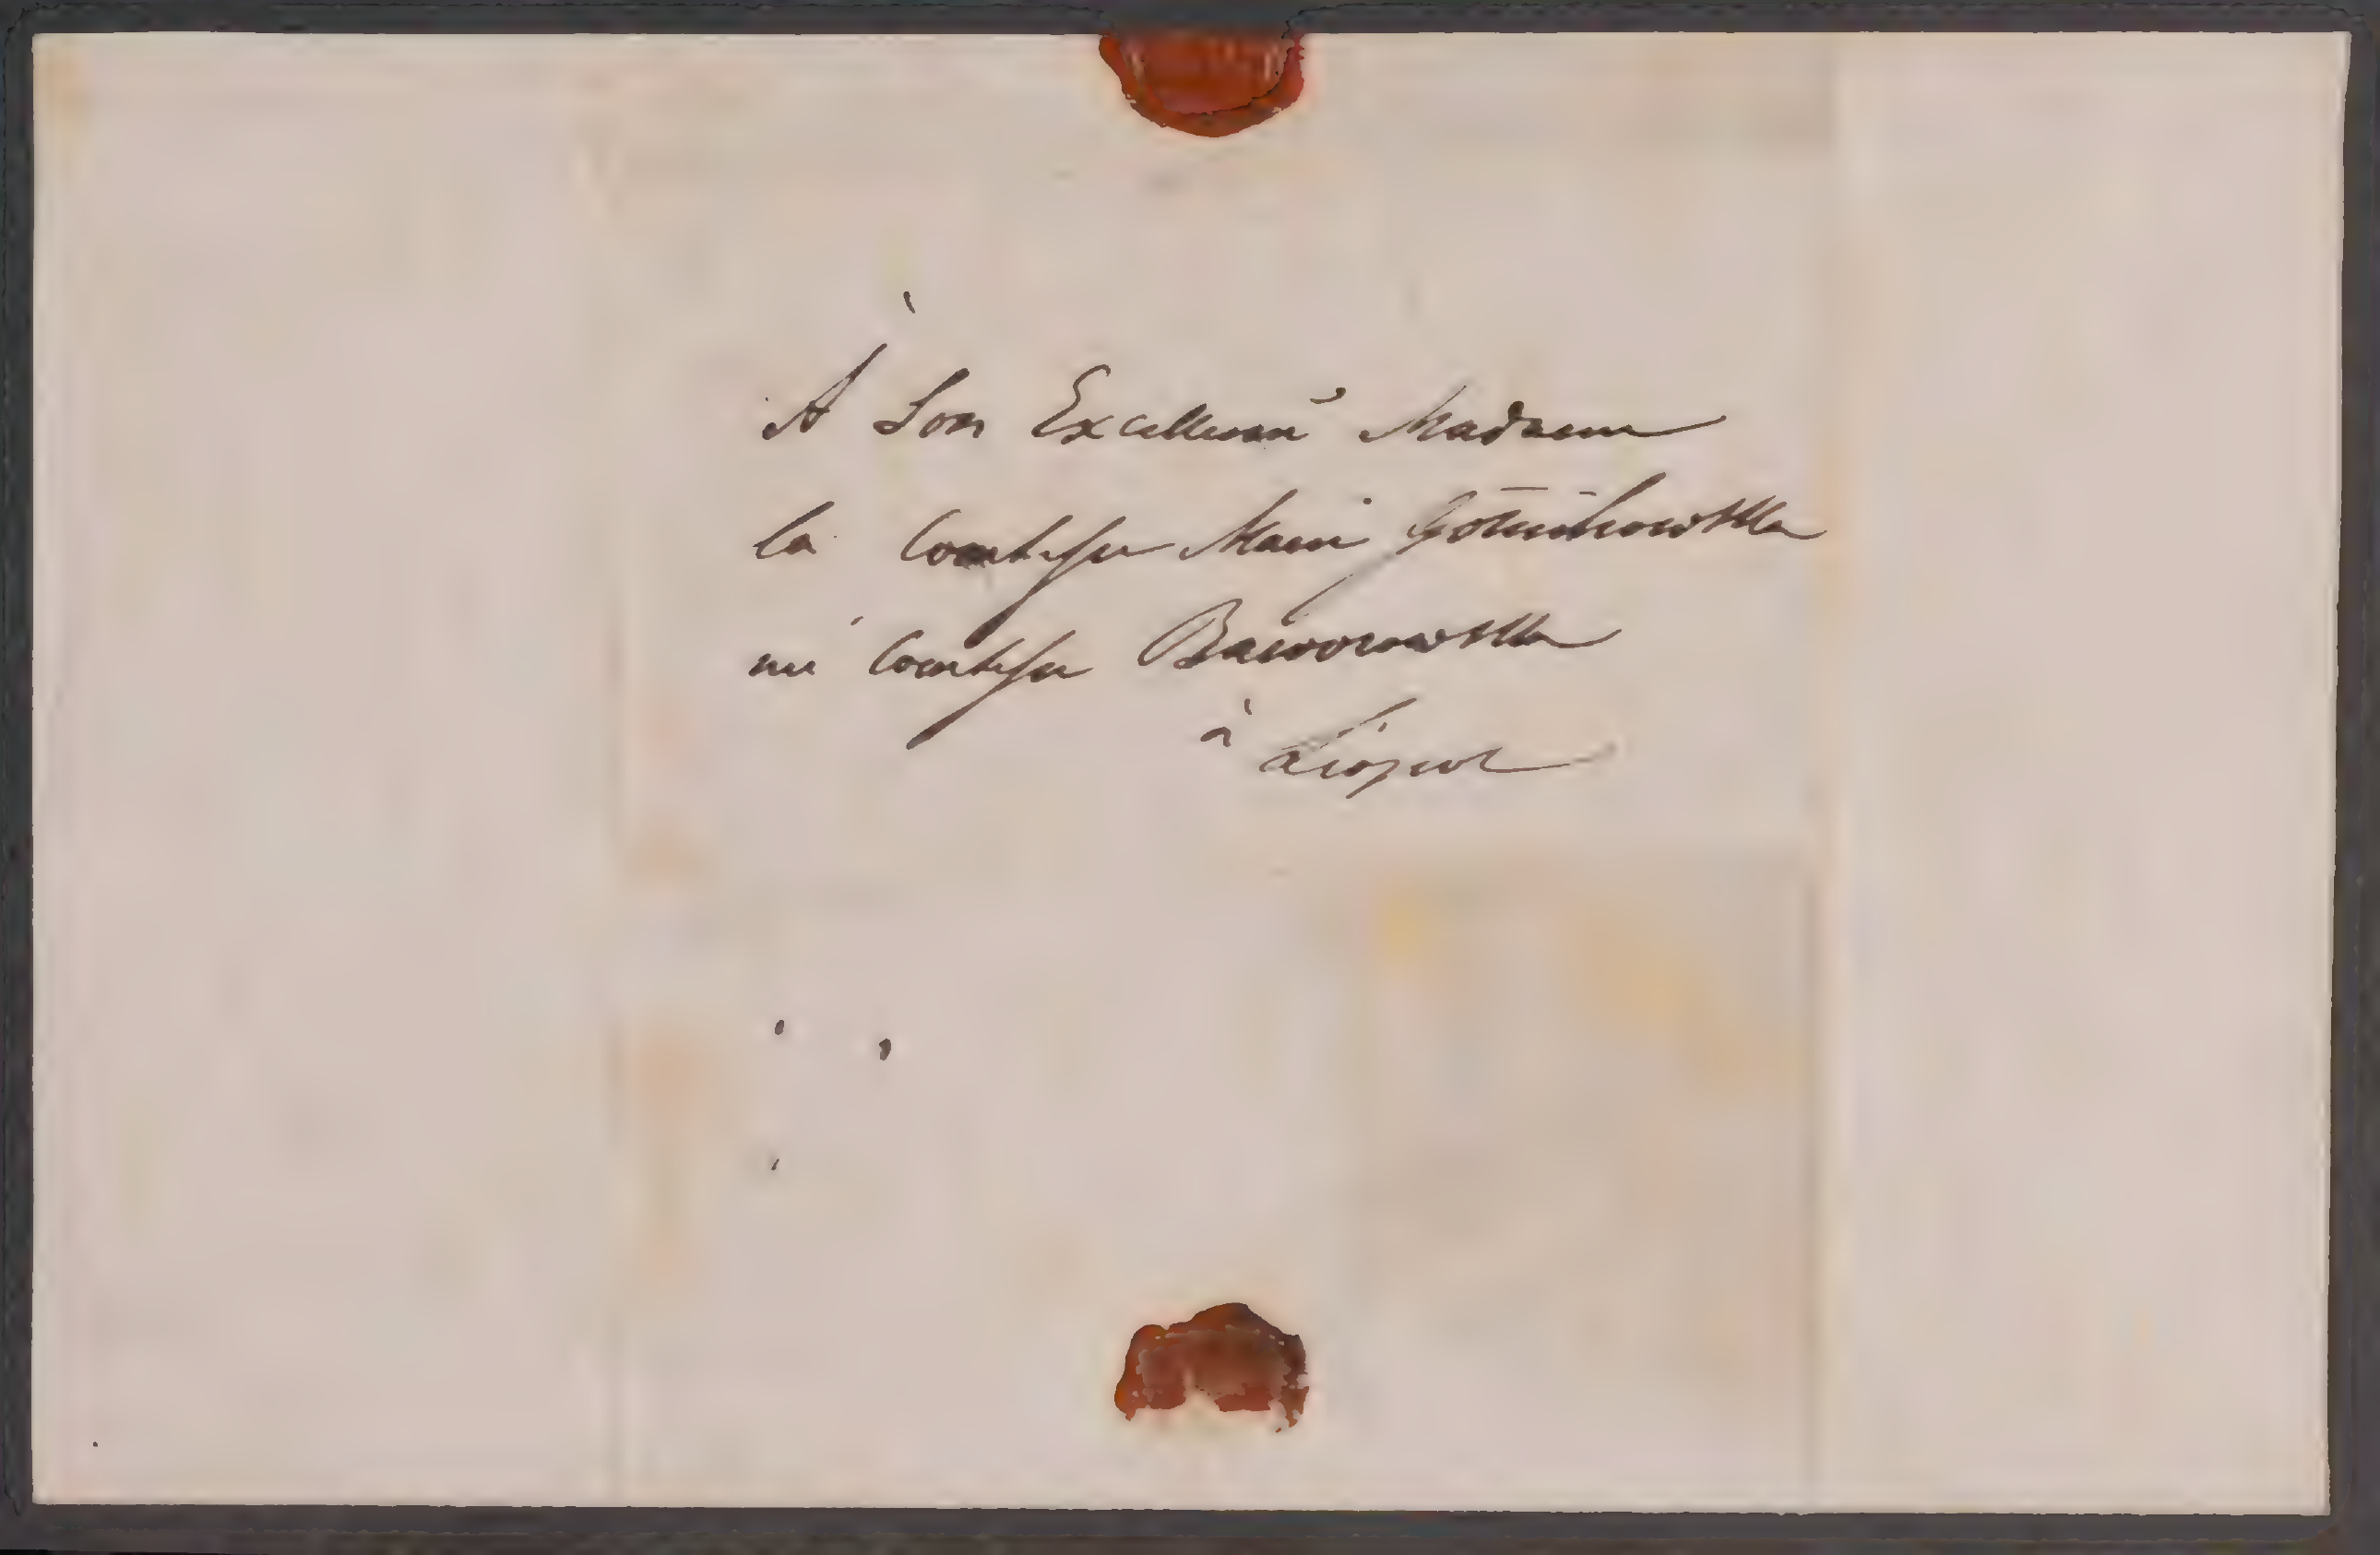 À Son Excellence Madame
la Comtesse Marie Gołuchowska
née Comtesse Baworowska
à Léopol